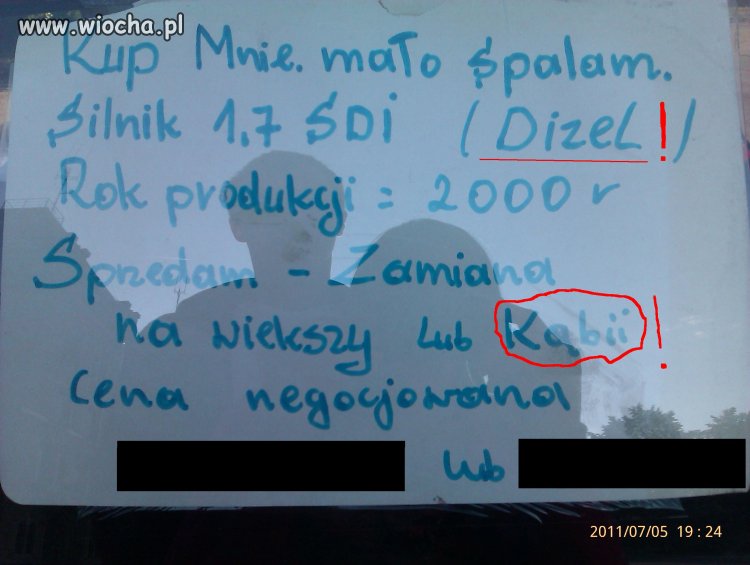 www.wiocha.pl
Kup Mnie. mało spalam.
Silnik 1,7 SDi (Dizel!)
Rok produkcji = 2000 r
Sprzedam - Zamiana
na wiekszy lub Kąbii!
Cena negocjowana
lub
2011/07/05 19:24